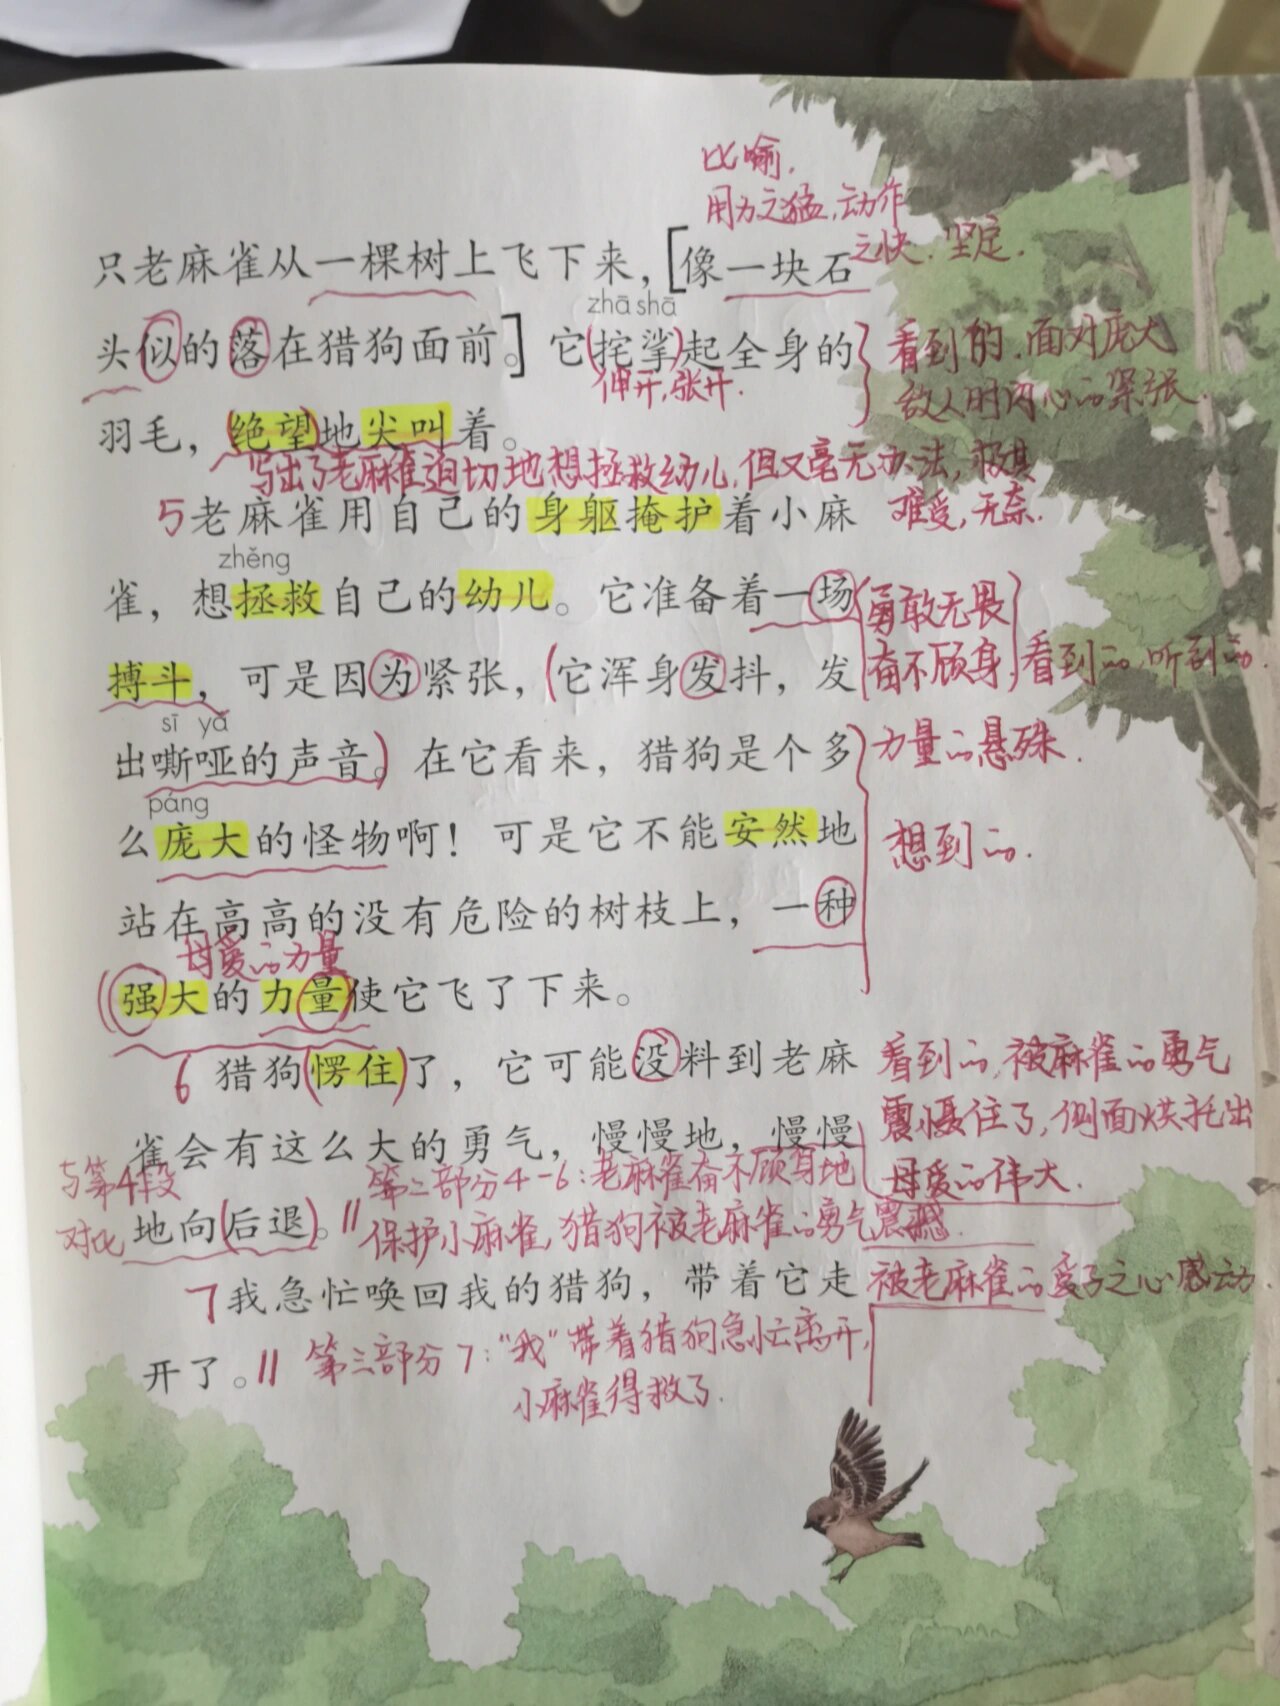 比喻.
用力之猛,动作
之快.坚定.
只老麻雀从一棵树上飞下来，[像一块石
zhā shā
头似的落在猎狗面前。]它(挓挲)起全身的
伸开,张开.
看到的.面对庞大
敌人时内心的紧张.
羽毛，(绝望)地尖叫着。
写出了老麻雀迫切地想拯救幼儿,但又毫无办法,极其
难受,无奈.
5老麻雀用自己的身躯掩护着小麻
zhěng
雀，想拯救自己的幼儿。它准备着一场
勇敢无畏
奋不顾身
看到的,听到的.
搏斗，可是因为紧张，(它浑身发抖，发
sī yǎ
出嘶哑的声音。)在它看来，猎狗是个多
力量的悬殊.
páng
么庞大的怪物啊！可是它不能安然地
想到的.
站在高高的没有危险的树枝上，一种
母爱的力量
(强大的力量)使它飞了下来。
6猎狗(愣住)了，它可能没料到老麻
看到的,被麻雀的勇气
震慑住了,侧面烘托出
母爱的伟大.
雀会有这么大的勇气，慢慢地，慢慢
与第4段
对比
地向(后退)。||
第二部分4-6:老麻雀奋不顾身地
保护小麻雀,猎狗被老麻雀的勇气震撼.
7我急忙唤回我的猎狗，带着它走
被老麻雀的爱子之心感动.
开了。||
第三部分7:"我"带着猎狗急忙离开,
小麻雀得救了.